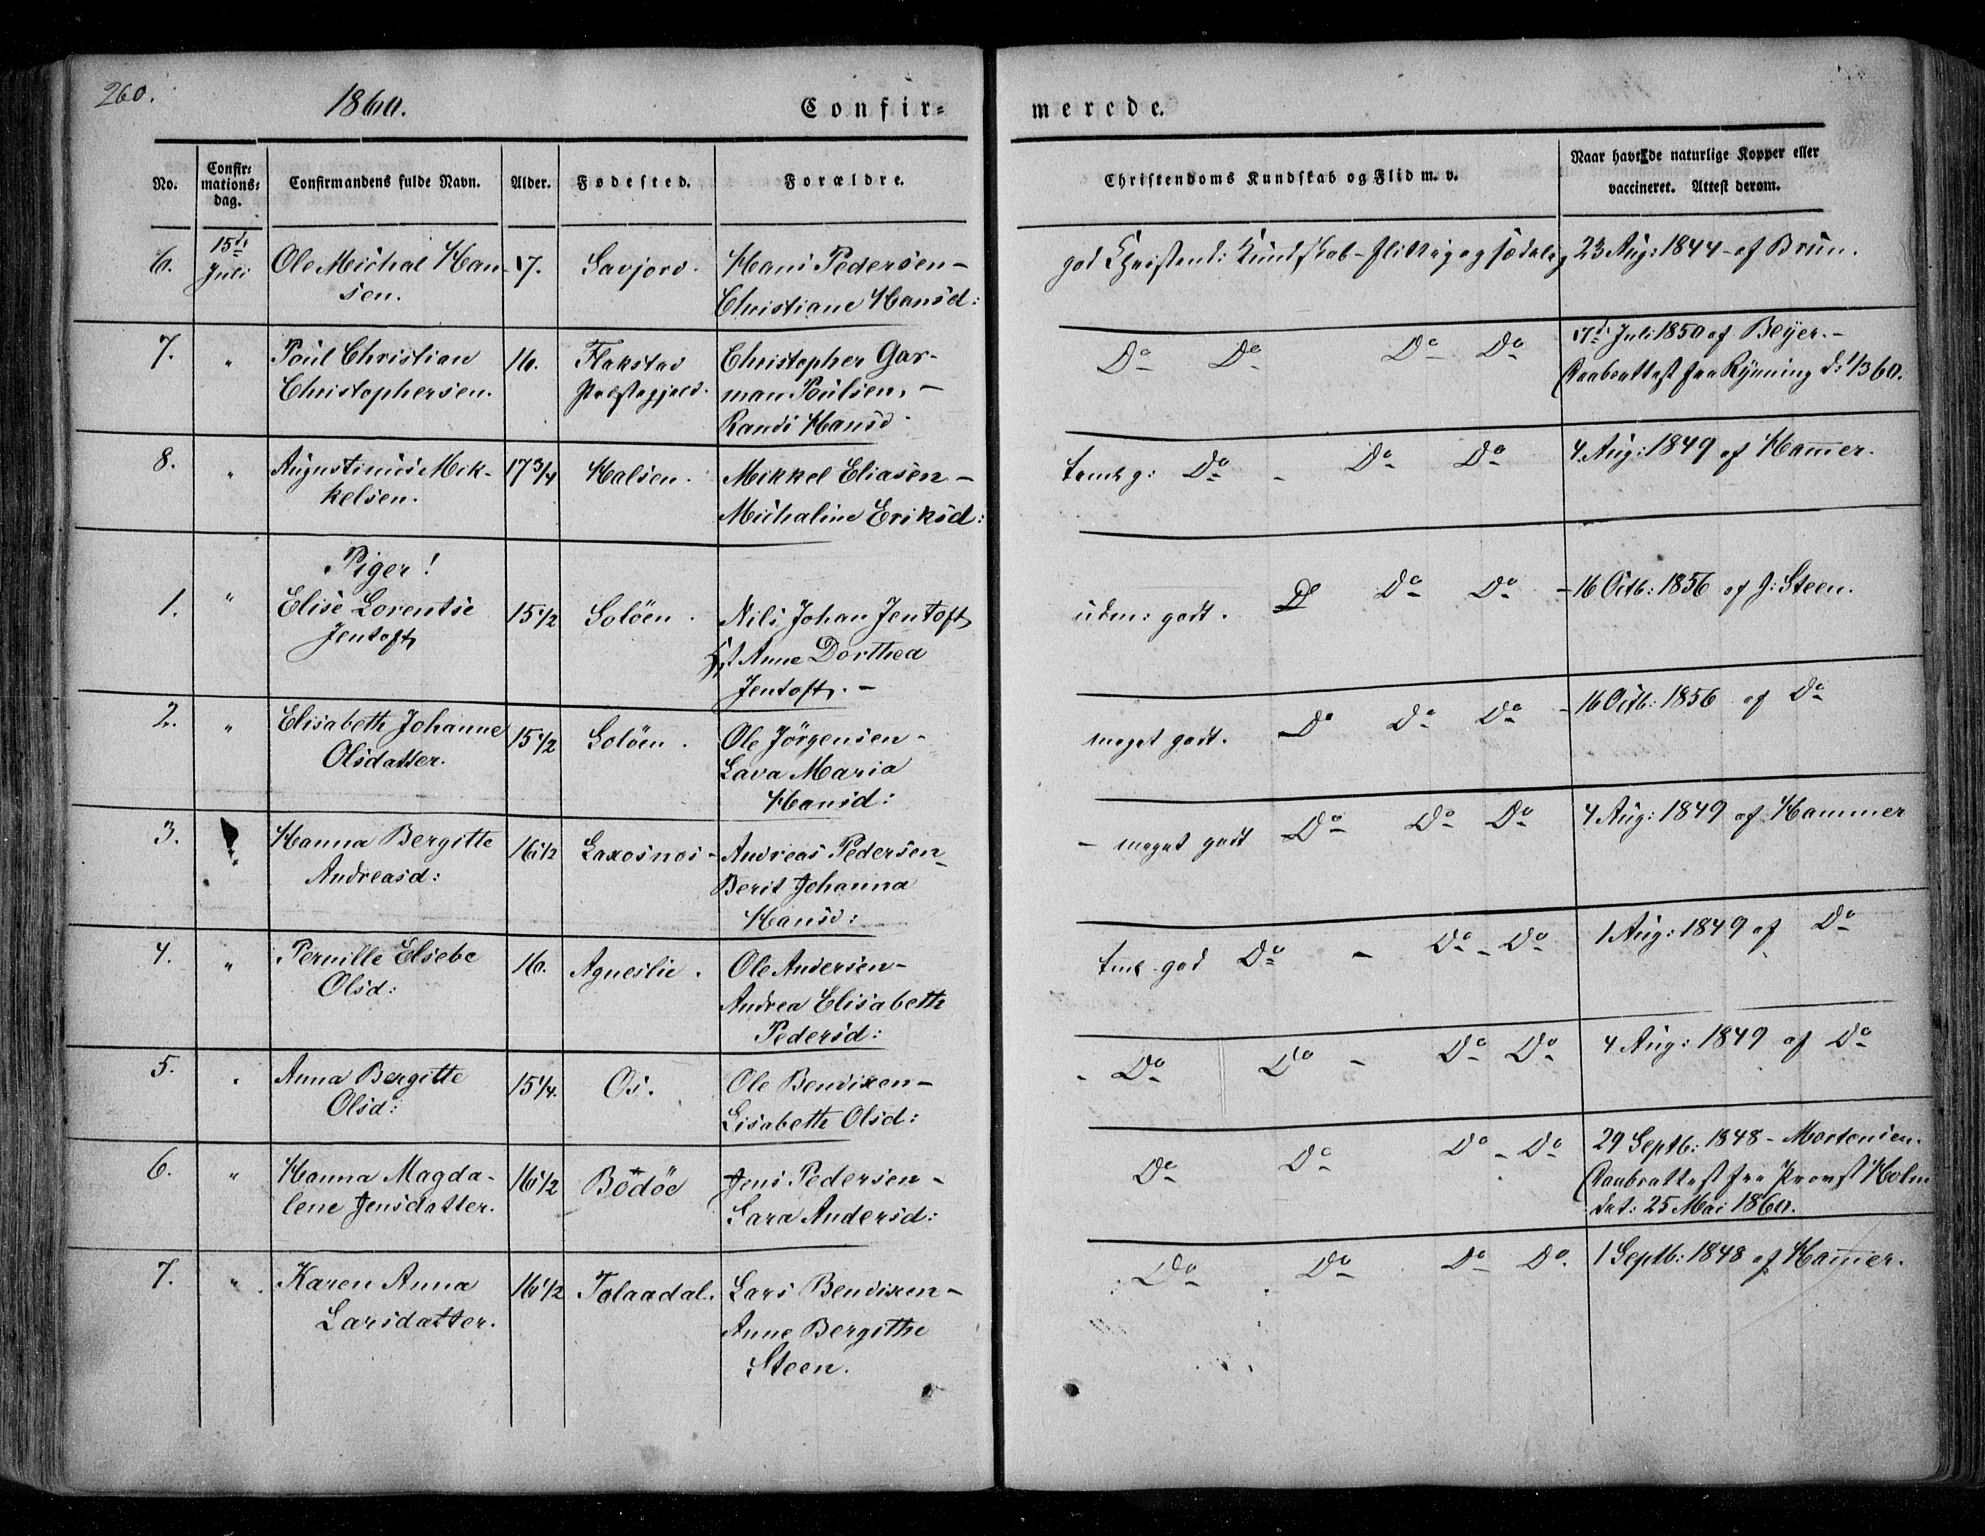 260.
1860.
Confir=
merede.
No.
Confir-
mations-
dag.
Confirmandens fulde Navn.
Alder.
Fødested.
Forældre.
Christendoms Kundskab og Flid m. v.
Naar havt de naturlige Kopper eller
vaccineret. Attest derom.
6.
15de
Juli
Ole Michal Han
sen.
17.
Savjord.
Hans Pedersen –
Christiane Hansd:
god Christend: Kundskab – flittig og sædelig
23 Aug: 1844 – af Brun.
7.
"
Poul Christian
Christophersen.
16.
Flakstad
Præstegjeld.
Christopher Gar-
man Poulsen, –
Randi Hansd.
Do Do Do Do
17de Juli 1850 af Beijer. –
Daabsattest fra Rynning d: 1/3 60.
8.
"
Augustinus Mik-
kelsen.
17 3/4
Halsen.
Mikkel Eliasen –
Michaline Eriksd:
temlg: Do – Do Do
4 Aug: 1849 af Hammer.
Piger!
1.
"
Elise Lorentse
Jentoft
15 1/2
Soløen.
Nils Johan Jentoft
Anne Dorthea
Jentoft. –
udm: godt. Do Do Do –
16 Octb: 1856 af J: Steen.
2.
"
Elisabeth Johanne
Olsdatter.
15 1/2
Soløen.
Ole Jörgensen –
Lava Maria
Hansd:
meget godt. Do Do Do –
16 Octb: 1856 af Do
3.
"
Hanna Bergitte
Andreasd:
16 1/2
Laxosnos –
Andreas Pedersen –
Berit Johanna
Hansd:
– meget godt Do Do Do
4 Aug: 1849 af Hammer
4.
"
Pernille Elsebe
Olsd:
16.
Agneslie.
Ole Andersen –
Andrea Elisabeth
Pedersd:
teml. god Do – Do – Do
1 Aug: 1849 af Do
5.
"
Anna Bergitte
Olsd:
15 1/4.
Os.
Ole Bendixen –
Lisabeth Olsd:
– Do Do – Do Do
4 Aug: 1849 af Do
6.
"
Hanna Magda-
lene Jensdatter.
16 1/2
Bodöe
Jens Pedersen –
Sara Andersd:
Do Do Do – Do
29 Septb: 1848 – Mortensen.
Daabsattest fra Provst Holm
dat: 25 Mai 1860.
7.
"
Karen Anna
Larsdatter.
16 1/2
Tolaadal.
Lars Bendixen –
Anne Bergithe
Steen.
Do Do Do Do.
1 Septb: 1848 af Hammer.